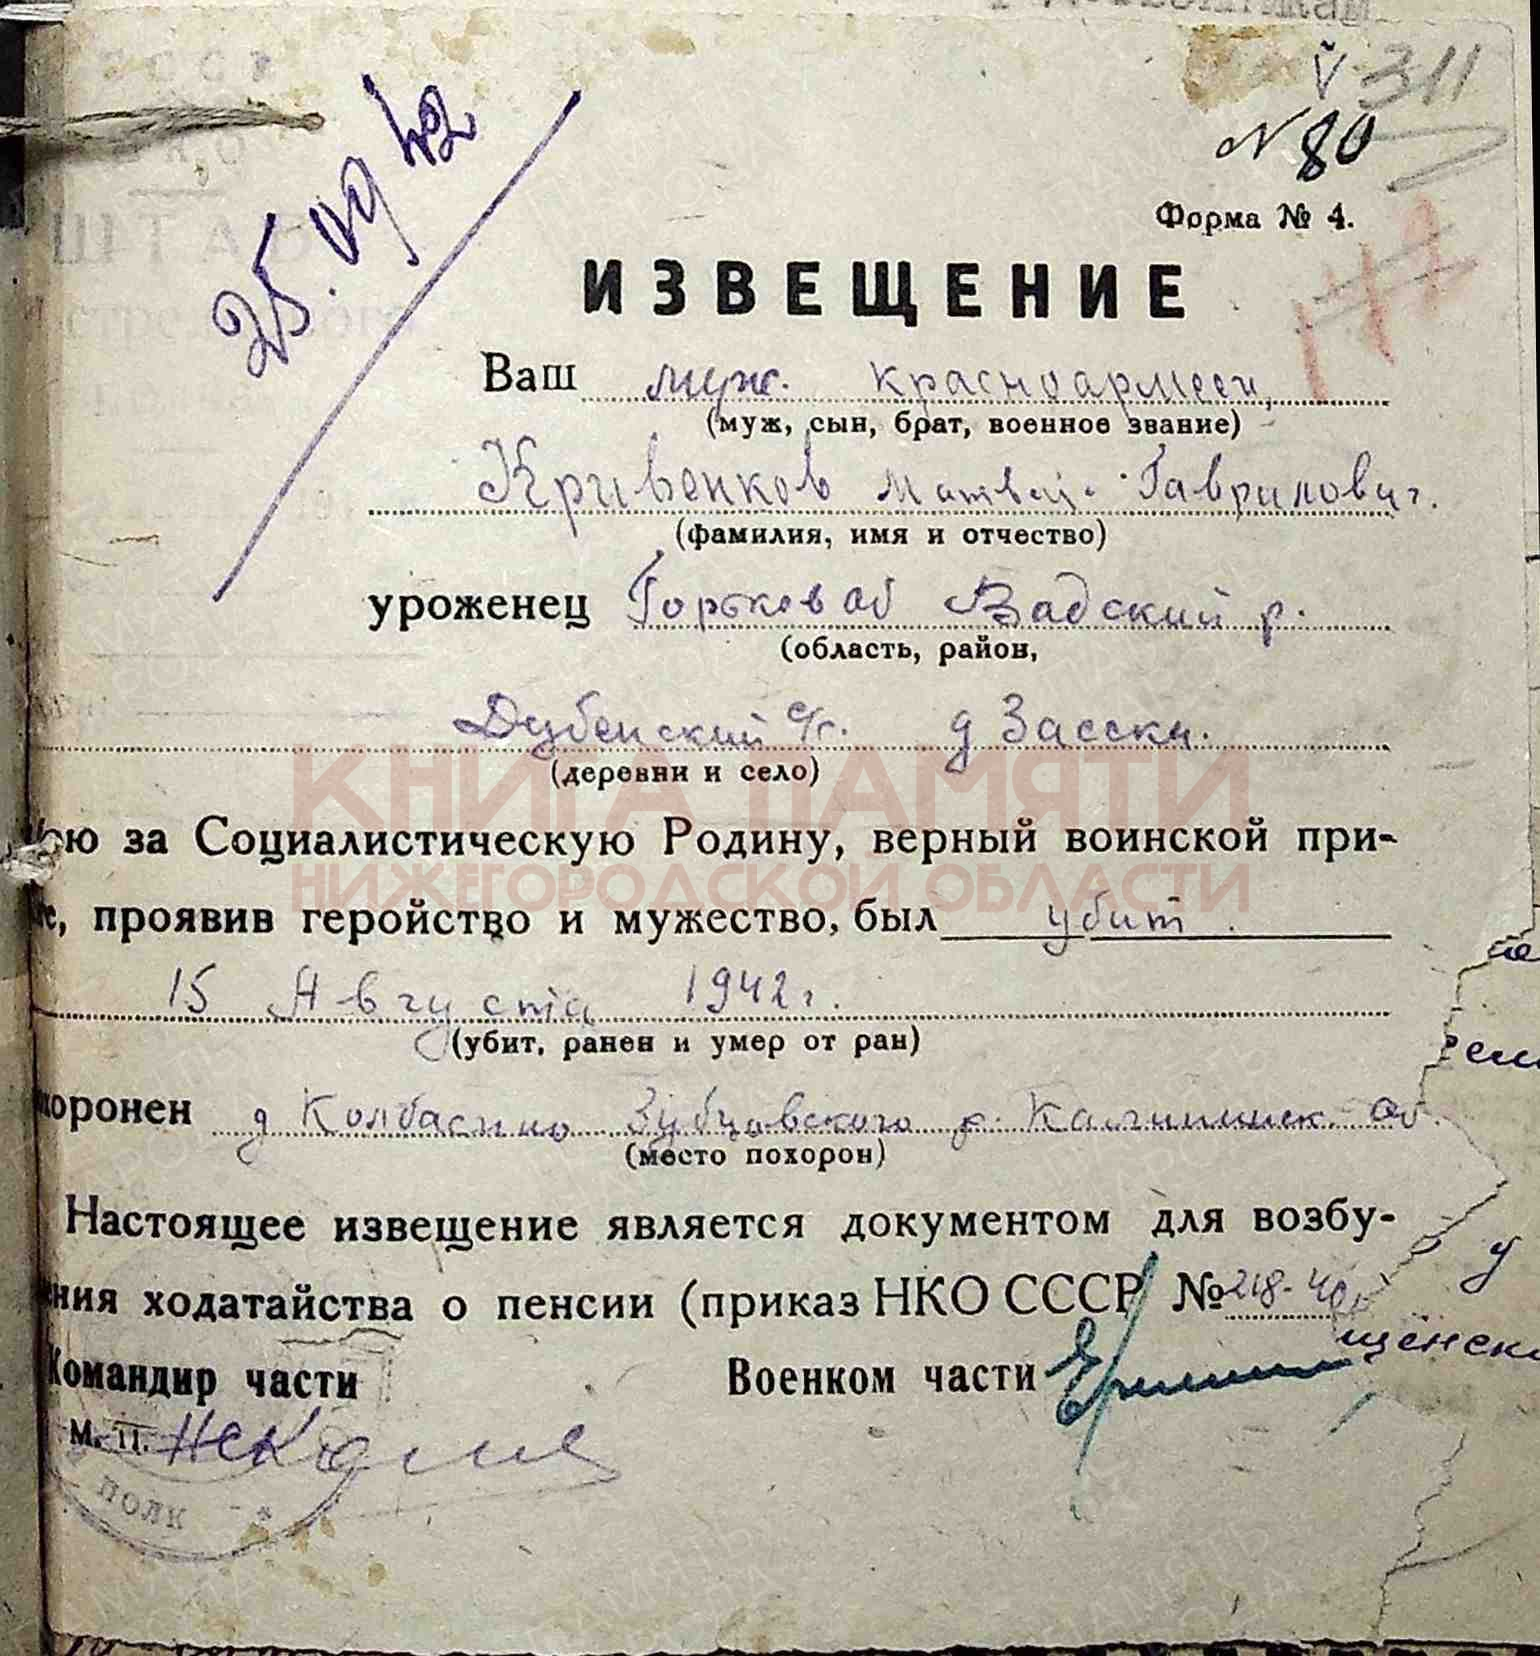 311
N 80
25.09 42
Форма № 4.
ИЗВЕЩЕНИЕ
Ваш муж. красноармеец,
(муж, сын, брат, военное звание)
Кривенков Матвей Гаврилович.
(фамилия, имя и отчество)
уроженец Горьков об Вадский р.
(область, район,
Дубенский с/с. д Засеки.
(деревни и село)
ою за Социалистическую Родину, верный воинской при-
ге, проявив геройство и мужество, был убит.
15 Августа 1942 г.
(убит, ранен и умер от ран)
хоронен д Колбасино Зубцовского р. Калининск. об.
(место похорон)
Настоящее извещение является документом для возбу-
ния ходатайства о пенсии (приказ НКО СССР №
Командир части Военком части
М. П.
ПОЛК
КНИГА ПАМЯТИ
НИЖЕГОРОДСКОЙ ОБЛАСТИ